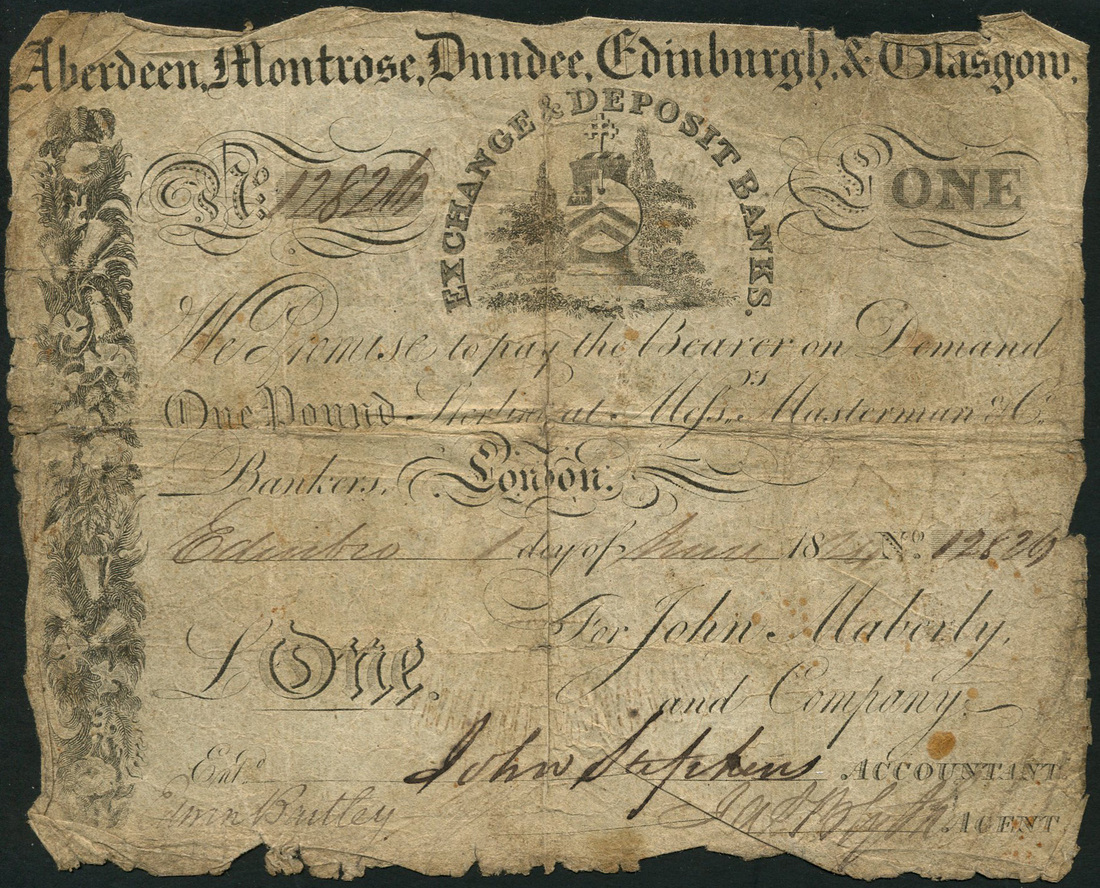 Aberdeen, Montrose, Dundee, Edinburgh, & Glasgow.
EXCHANGE & DEPOSIT BANKS.
No. £ONE
We Promise to pay the Bearer on Demand
One Pound Sterling at Messrs. Masterman & Co.
Bankers, London.
Edinbro 1 day of June 18 No.
For John Maberly,
£ One. and Company.
Entd. John Stephens ACCOUNTANT
AGENT